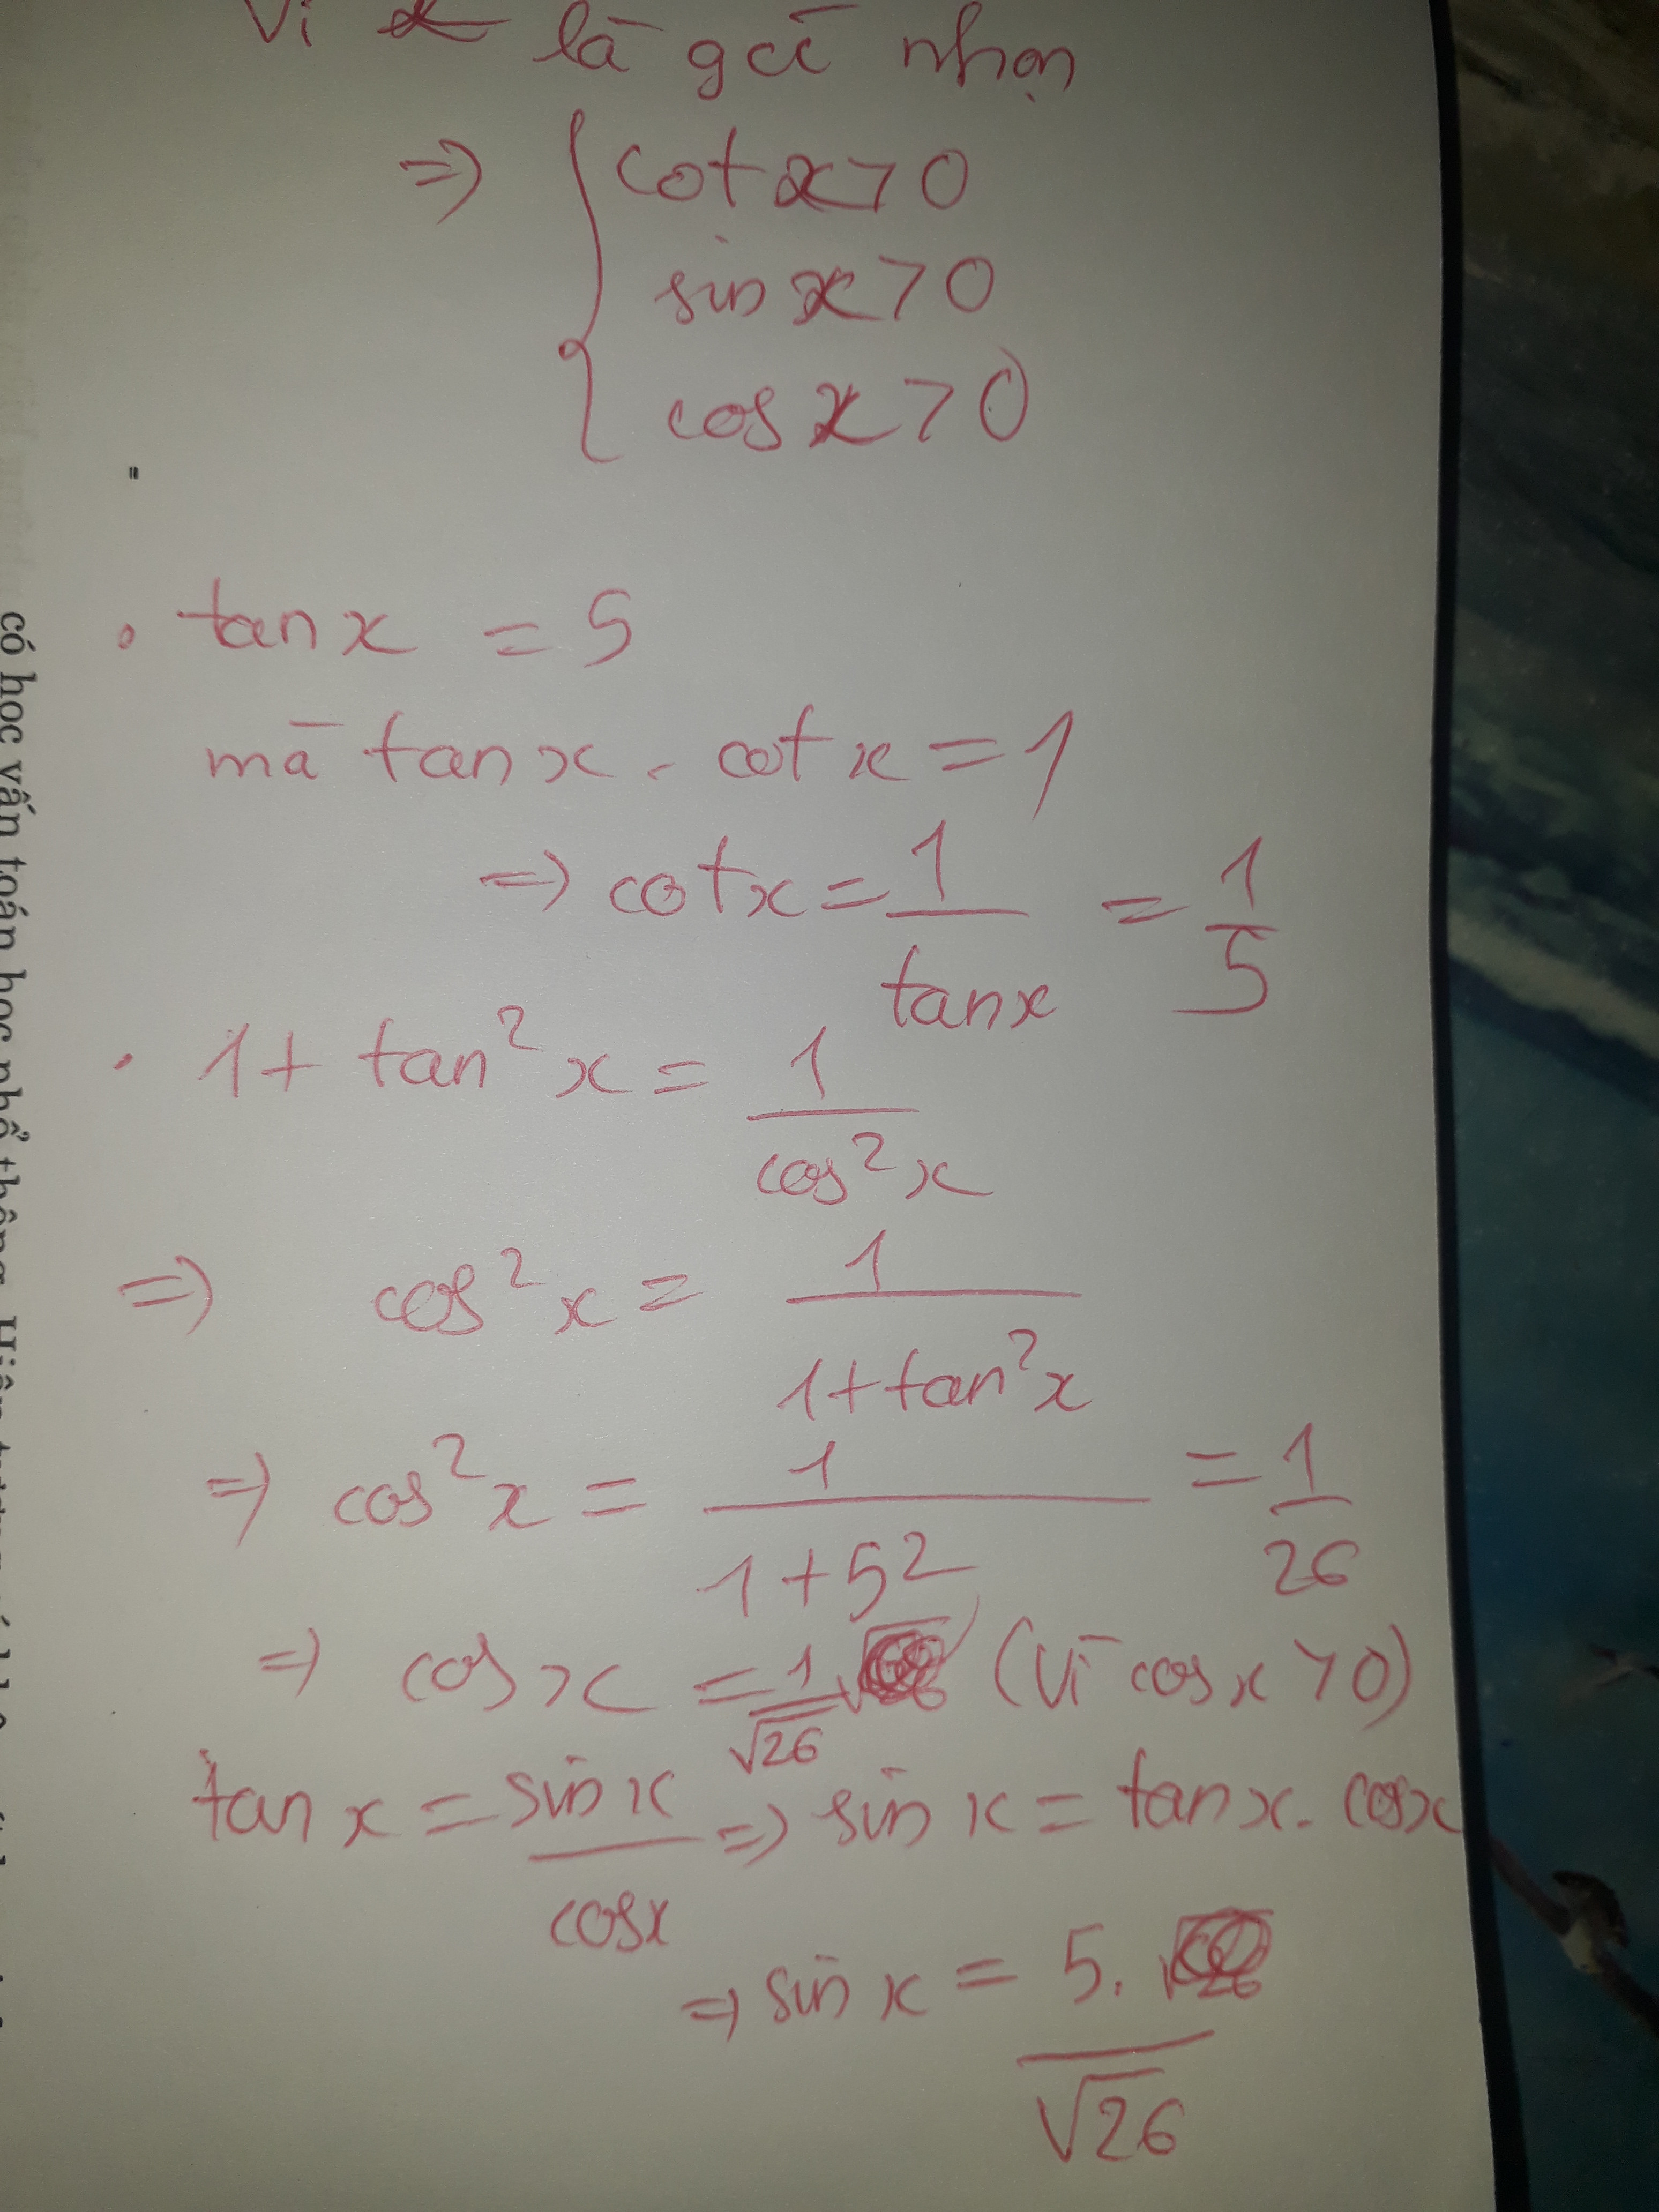 Vì x là góc nhọn
=> { cot x > 0
sin x > 0
cos x > 0
• tan x = 5
mà tan x . cot x = 1
=> cot x = 1/tan x = 1/5
• 1 + tan² x = 1/cos² x
=> cos² x = 1/(1 + tan² x)
=> cos² x = 1/(1 + 5²) = 1/26
=> cos x = 1/√26 (vì cos x > 0)
tan x = sin x/cos x => sin x = tan x . cos x
=> sin x = 5/√26
có học vấn toán học phổ thông. Hiện